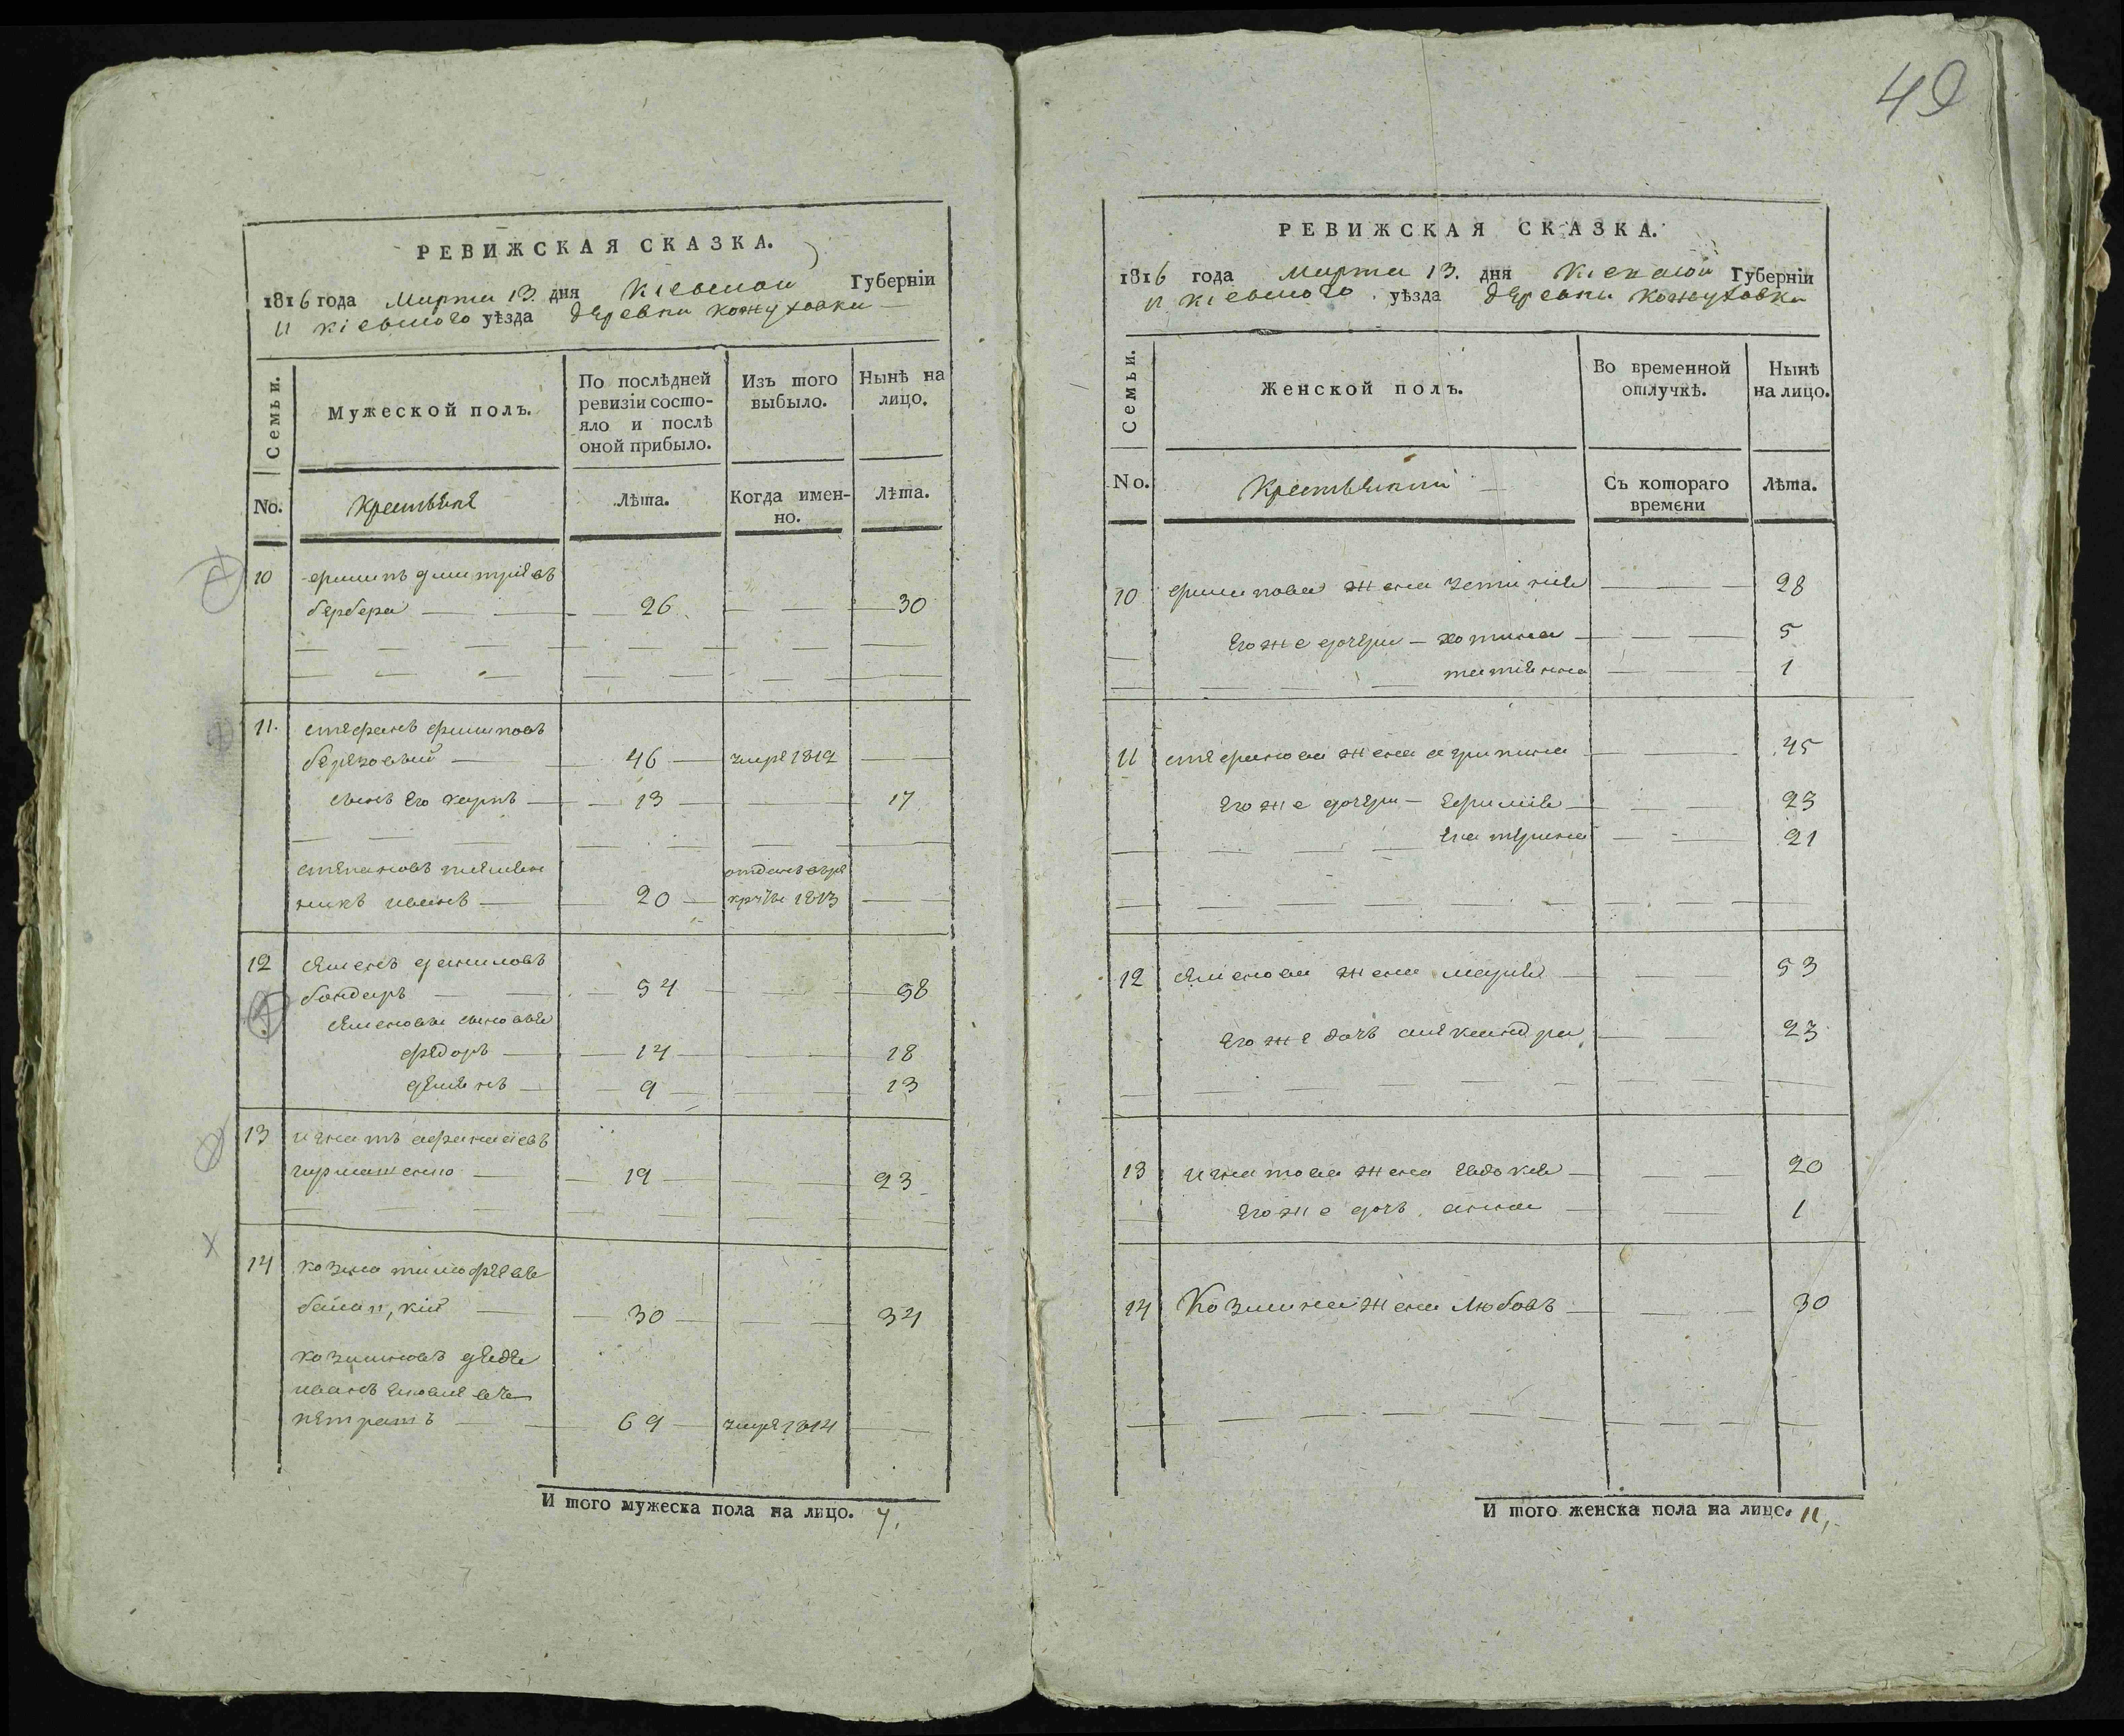 РЕВИЖСКАЯ СКАЗКА.
1816 года Марта 13. дня Киевской Губерніи
и киевского уѣзда деревни кожуховки
Семьи.
Мужеской полъ.
По послѣдней ревизіи состояло и послѣ оной прибыло.
Изъ того выбыло.
Нынѣ на лицо.
No.
Крестьяне
Лѣта.
Когда именно.
Лѣта.
10 филипъ дмитріевъ
бербера 26 30
11. стефанъ филиповъ
березовый 46 умре 1812
сынъ Его карпъ 13 17
степановъ племян
никъ иванъ 20 отданъ в ре
круты 1813
12 семенъ даниловъ
бондаръ 54 58
семеновы сыновья
федоръ 14 18
демянъ 9 13
13 игнатъ афанасіевъ
19 23
14 козма тимофеевъ
30 34
козминовъ дядя
иванъ
69 умре 1814
И того мужеска пола на лицо. 7.
49
РЕВИЖСКАЯ СКАЗКА.
1816 года Марта 13. дня Киевской Губерніи
и киевского уѣзда деревни кожуховки
Семьи.
Женской полъ.
Во временной отлучкѣ.
Нынѣ на лицо.
No.
Крестьянки
Съ котораго времени
Лѣта.
10 филипова жена устинія 28
Его же дочери — хотина 5
татіянна 1
11 стефанова жена агрипина 45
Его же дочери — Ефимія 23
Екатерина 21
12 семенова жена марія 53
Его же дочь александра 23
13 игнатова жена Евдокия 20
Его же дочь анна 1
14 Козмина жена Любовъ 30
И того женска пола на лицо. 11,